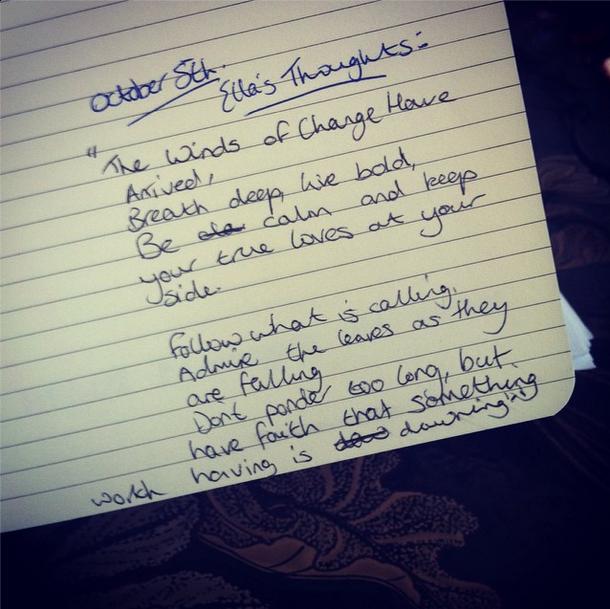 October 5th.
Ella's Thoughts:-
"The Winds of Change Have
Arrived,
Breath deep, live bold,
Be calm and keep
your true loves at your
side.
Follow what is calling,
Admire the leaves as they
are falling
Dont ponder too long, but
have faith that something
worth having is dawning"